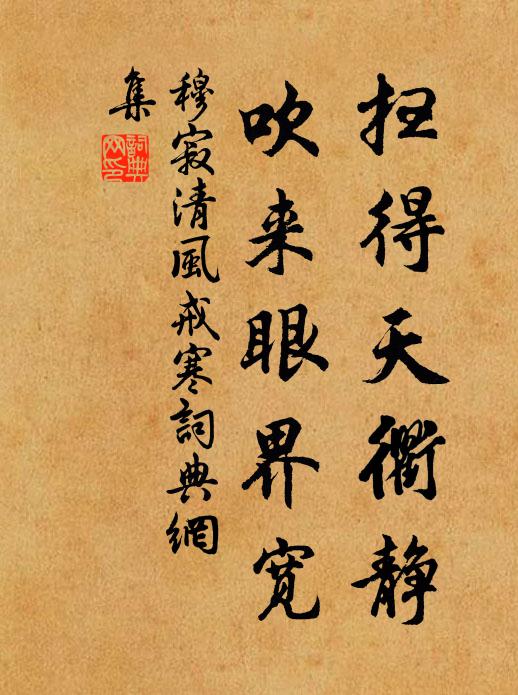 扫得天衢静
吹来眼界宽
穆寂清風戒寒詞典網
集
詞典网印